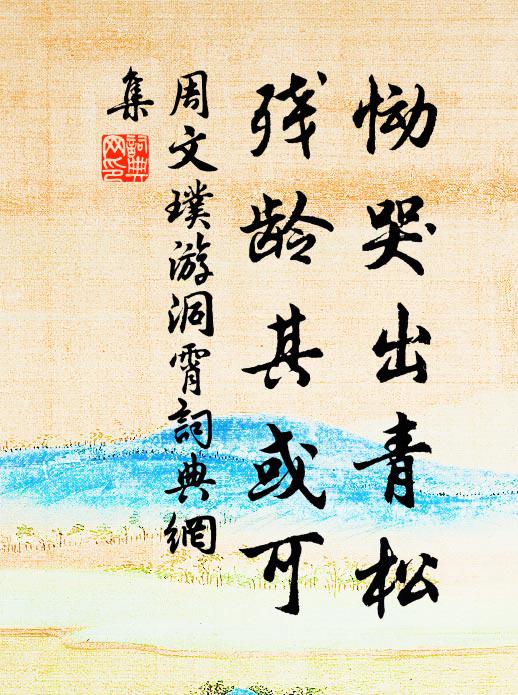 恸哭出青松
残龄其或可
周文璞游洞霄詞典網
集
詞典网印